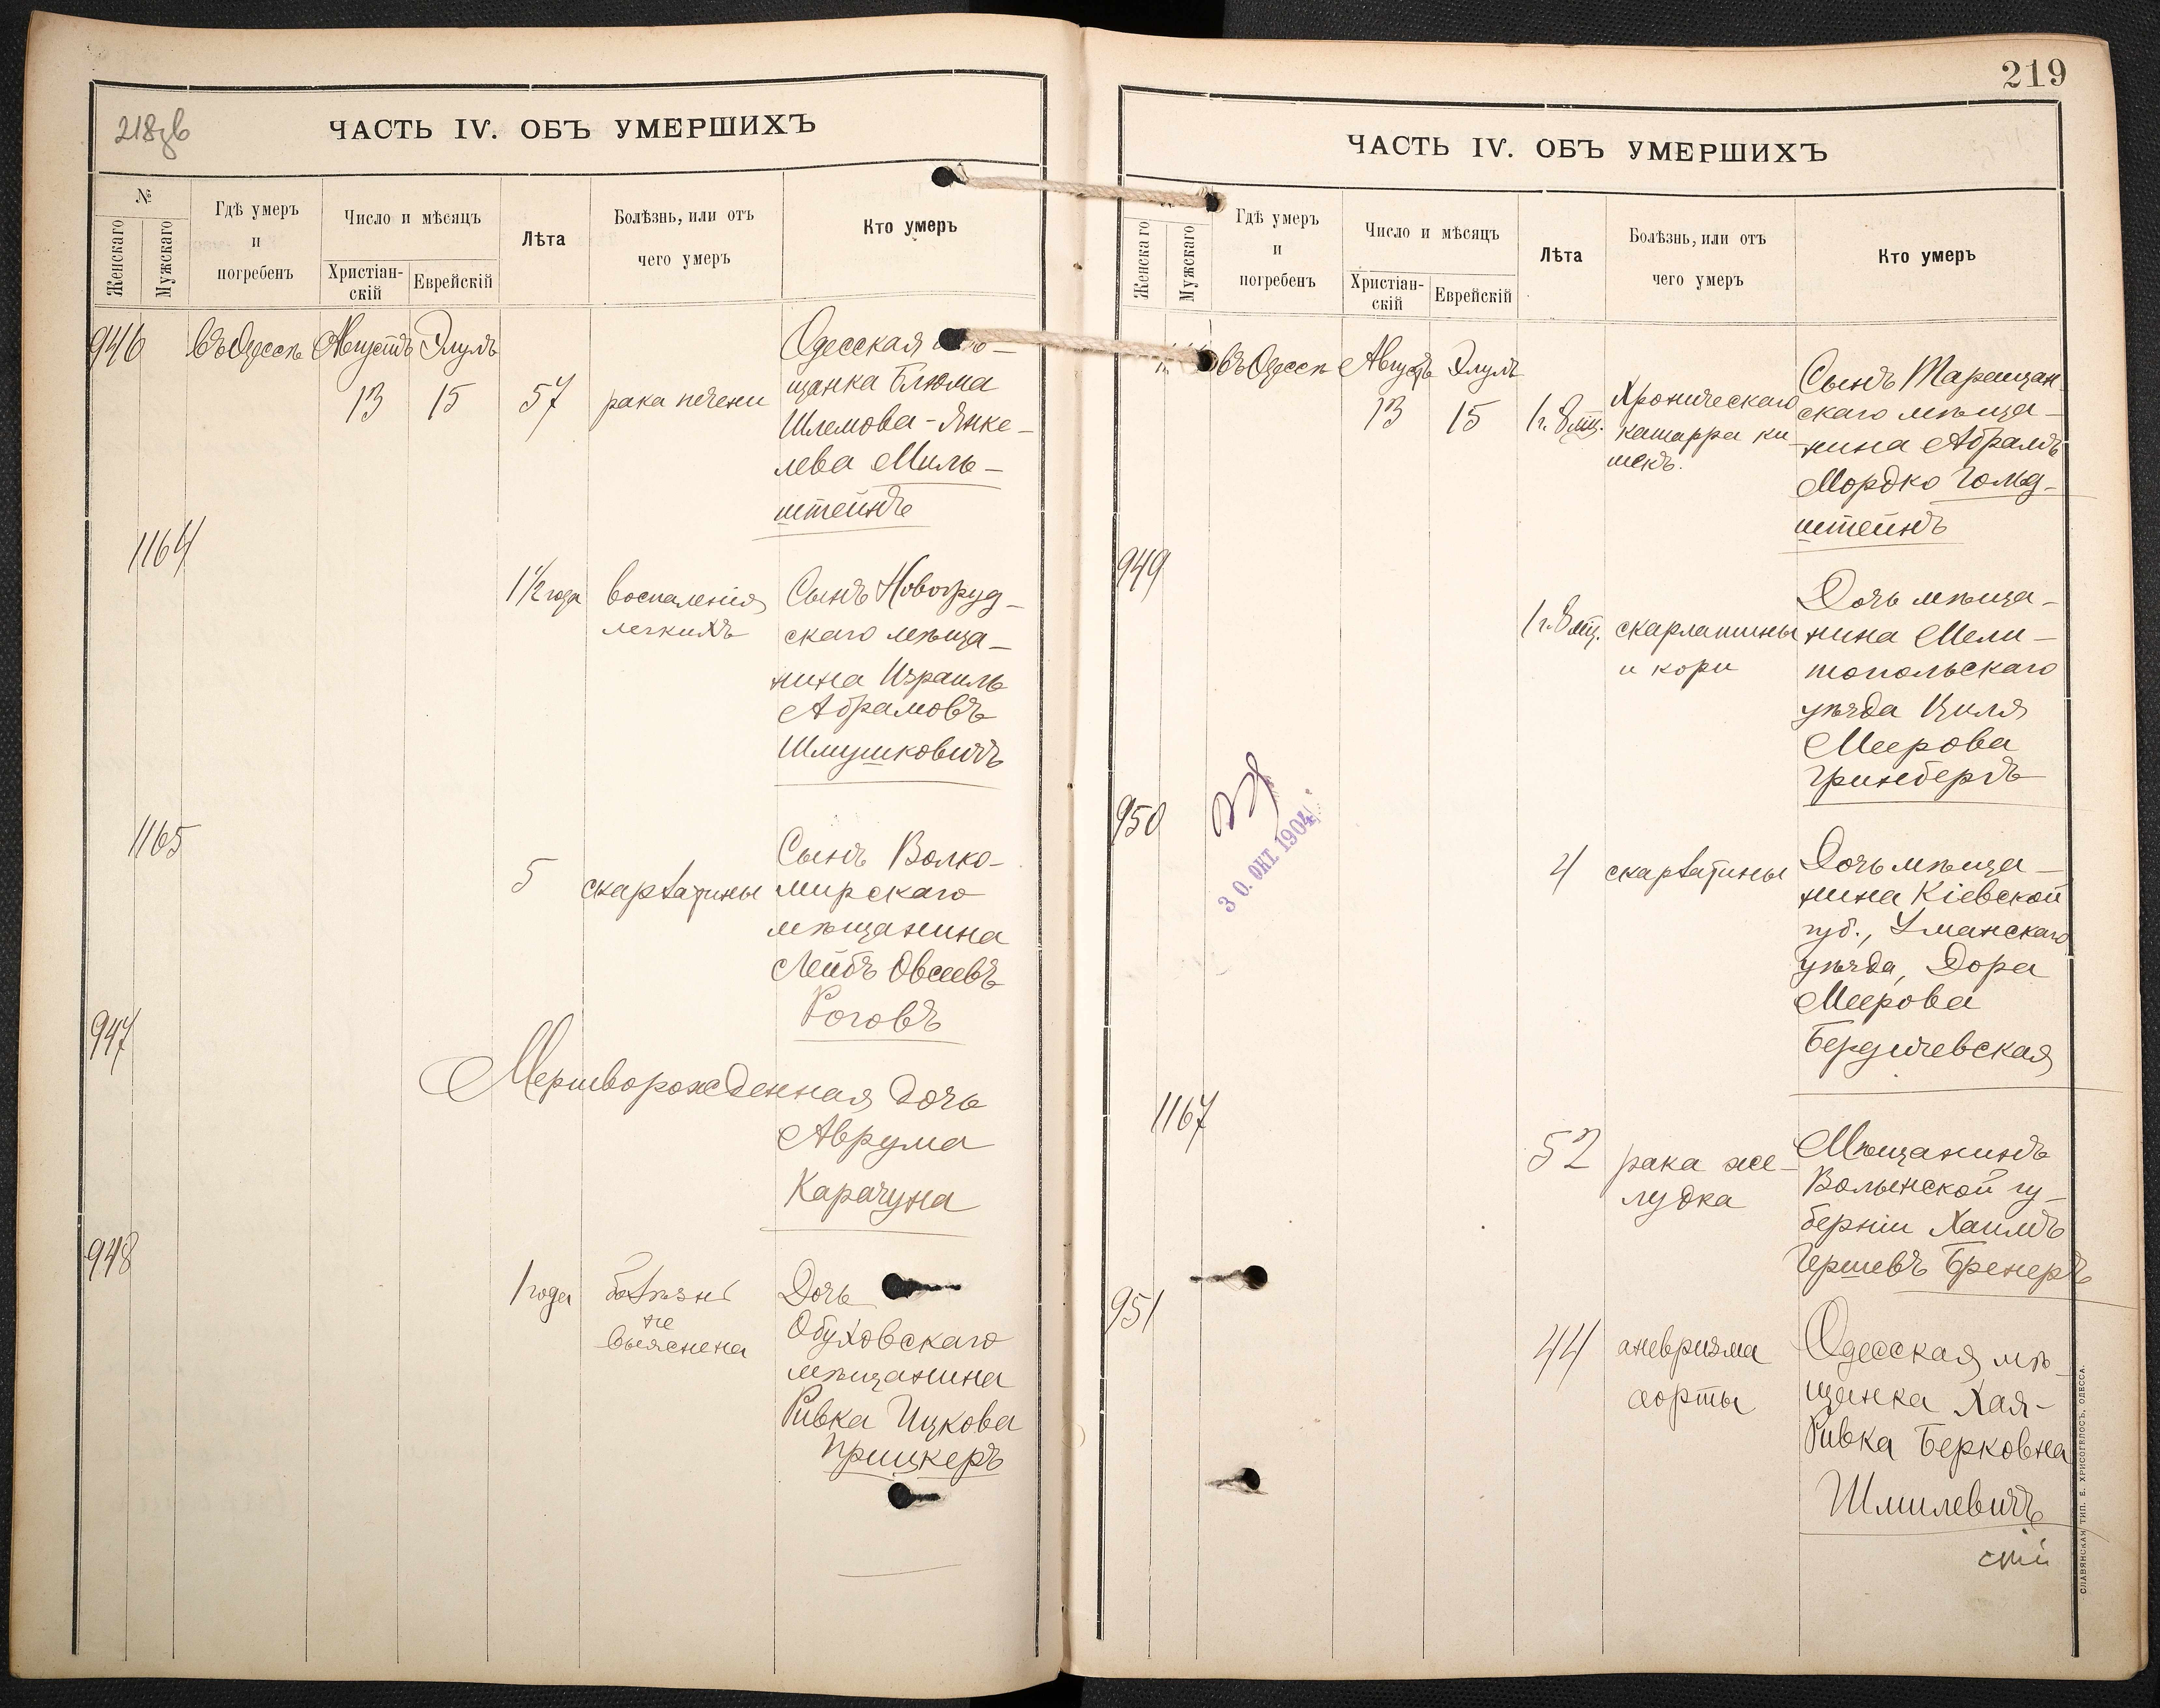 218зв
ЧАСТЬ IV. ОБЪ УМЕРШИХЪ
№
Женскаго
Мужскаго
Гдѣ умеръ
и
погребенъ
Число и мѣсяцъ
Христіан-
скій
Еврейскій
Лѣта
Болѣзнь, или отъ
чего умеръ
Кто умеръ
946
въ Одессѣ
Августъ
13
Элулъ
15
57
рака печени
Одесская
щанка Блюма
Шлемова-Янке-
лева Миль-
штейнъ
1164
1 1/2 года
воспаленія
легкихъ
Сынъ Новогруд-
скаго мѣща-
нина Израиль
Абрамовъ
Шмушковичъ
1165
5
скарлатины
Сынъ Волко-
мирскаго
мѣщанина
Лейбъ Овсеевъ
Роговъ
947
Мертворожденная дочь
Аврума
Карачуна
948
1 года
болѣзнь
не
выяснена
Дочь
Обуховскаго
мѣщанина
Ривка Ицкова
Прицкеръ
219
ЧАСТЬ IV. ОБЪ УМЕРШИХЪ
Женскаго
Мужскаго
Гдѣ умеръ
и
погребенъ
Число и мѣсяцъ
Христіан-
скій
Еврейскій
Лѣта
Болѣзнь, или отъ
чего умеръ
Кто умеръ
въ Одессѣ
Августъ
13
Элулъ
15
1 г. 8 мц.
Хроническаго
катарра ки-
шекъ.
Сынъ Таращан-
скаго мѣща-
нина Абрамъ
Мордко Гольд-
штейнъ
949
1 г. 8 мц.
скарлатины
и кори
Дочь мѣща-
нина Мели-
топольскаго
уѣзда Циля
Меерова
Гринбергъ
950
30. ОКТ. 1904
4
скарлатины
Дочь мѣща-
нина Кіевской
губ., Уманскаго
уѣзда, Дора
Меерова
Бердичевская
1167
52
рака же-
лудка
Мѣщанинъ
Волынской гу-
берніи Хаимъ
Гершевъ Бренеръ
951
44
аневризма
аорты
Одесская мѣ-
щанка Хая-
Ривка Берковна
Шмилевичъ
СЛАВЯНСКАЯ ТИП. Е. ХРИСОГЕЛОСЪ, ОДЕССА.